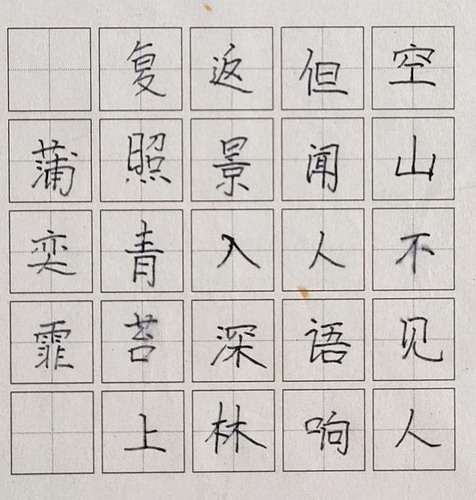 空山不见人
但闻人语响
返景入深林
复照青苔上
蒲奕霏